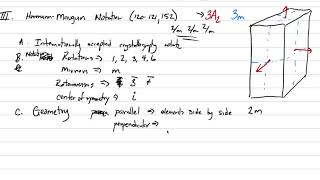 III. Hermann-Mauguin Notation (120-121, 152) → 3A₂ 3m
2/m 2/m 2/m
A. Internationally accepted crystallography notate
B. Notation Rotations ⇒ 1, 2, 3, 4, 6
Mirrors ⇒ m
Rotoinversions ⇒ 3̄ 4̄
center of symmetry ⇒ i
C. Geometry parallel ⇒ elements side by side 2m
perpendicular ⇒